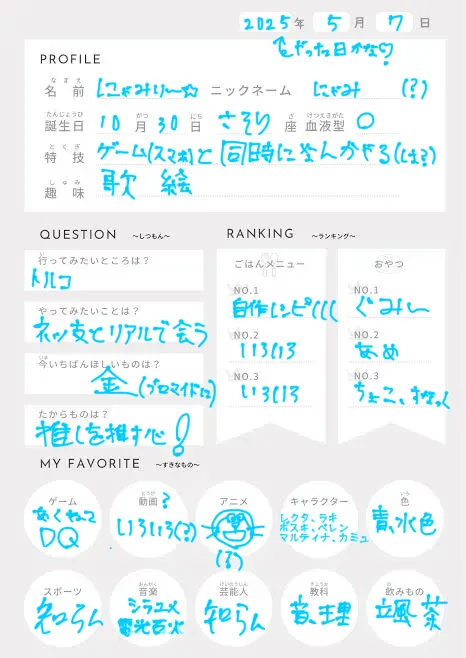 2025年 5月 7日
↑やった日かな♡
PROFILE
なまえ
名前 にゃみりー☆ ニックネーム にゃみ (?)
たんじょうび がつ にち ざ けつえきがた
誕生日 10月30日 さそり座 血液型 O
とくぎ
特技 ゲーム(スマホ)と同時になんかやる(しな?)
しゅみ
趣味 歌 絵
QUESTION ～しつもん～
RANKING ～ランキング～
い
行ってみたいところは?
トルコ
やってみたいことは?
ネッ友とリアルで会う
いま
今いちばんほしいものは?
金(ブロマイドに)
たからものは?
推しを推す心!
ごはんメニュー
NO.1
自作レシピ(((
NO.2
いろいろ
NO.3
いろいろ
おやつ
NO.1
ぐみー
NO.2
あめ
NO.3
ちょこ、すなっく
MY FAVORITE ～すきなもの～
ゲーム
DQ
どうが
動画?
いろいろ(?)
アニメ
キャラクター
レクタ、ラキ
ボスキ、ベレン
マルティナ、カミュ
いろ
色
青、水色
スポーツ
知らん
おんがく
音楽
シラユメ
電光石火
げいのうじん
芸能人
知らん
きょうか
教科
音、理
の
飲みもの
立風茶